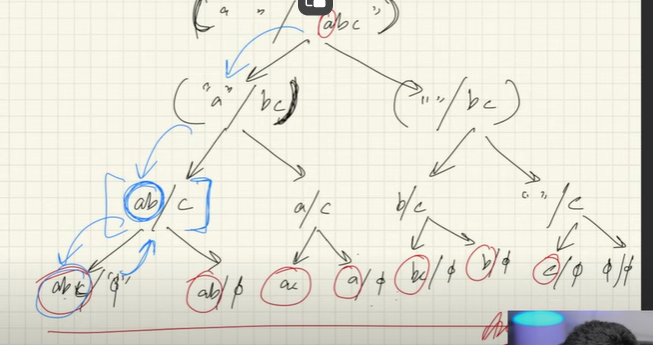 (" " / abc")
("a" / bc) ("" / bc)
[ab / c] a/c b/c "" / c
abc / "ϕ" ab / ϕ ac a / ϕ bc / ϕ b / ϕ c / ϕ ϕ / ϕ